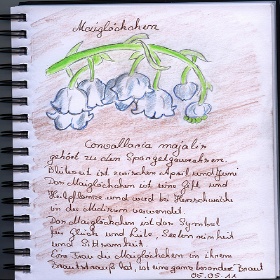 Maiglöckchen
Convallaria majalis
gehört zu den Spargelgewächsen.
Blütezeit ist zwischen April und Juni
Das Maiglöckchen ist eine Gift und
Heilpflanze und wird bei Herzschwäche
in der Medizin verwendet.
Das Maiglöckchen ist das Symbol
für Glück und Liebe, Seelenreinheit
und Sittsamkeit.
Eine Frau die Maiglöckchen in ihrem
Brautstrauß hat, ist eine ganz besondere Braut
05.05.11